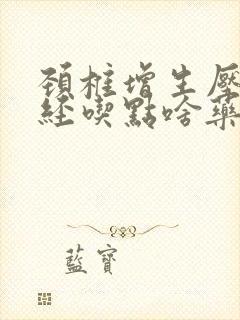 頚椎增生壓
經喫點啥藥
藍寶